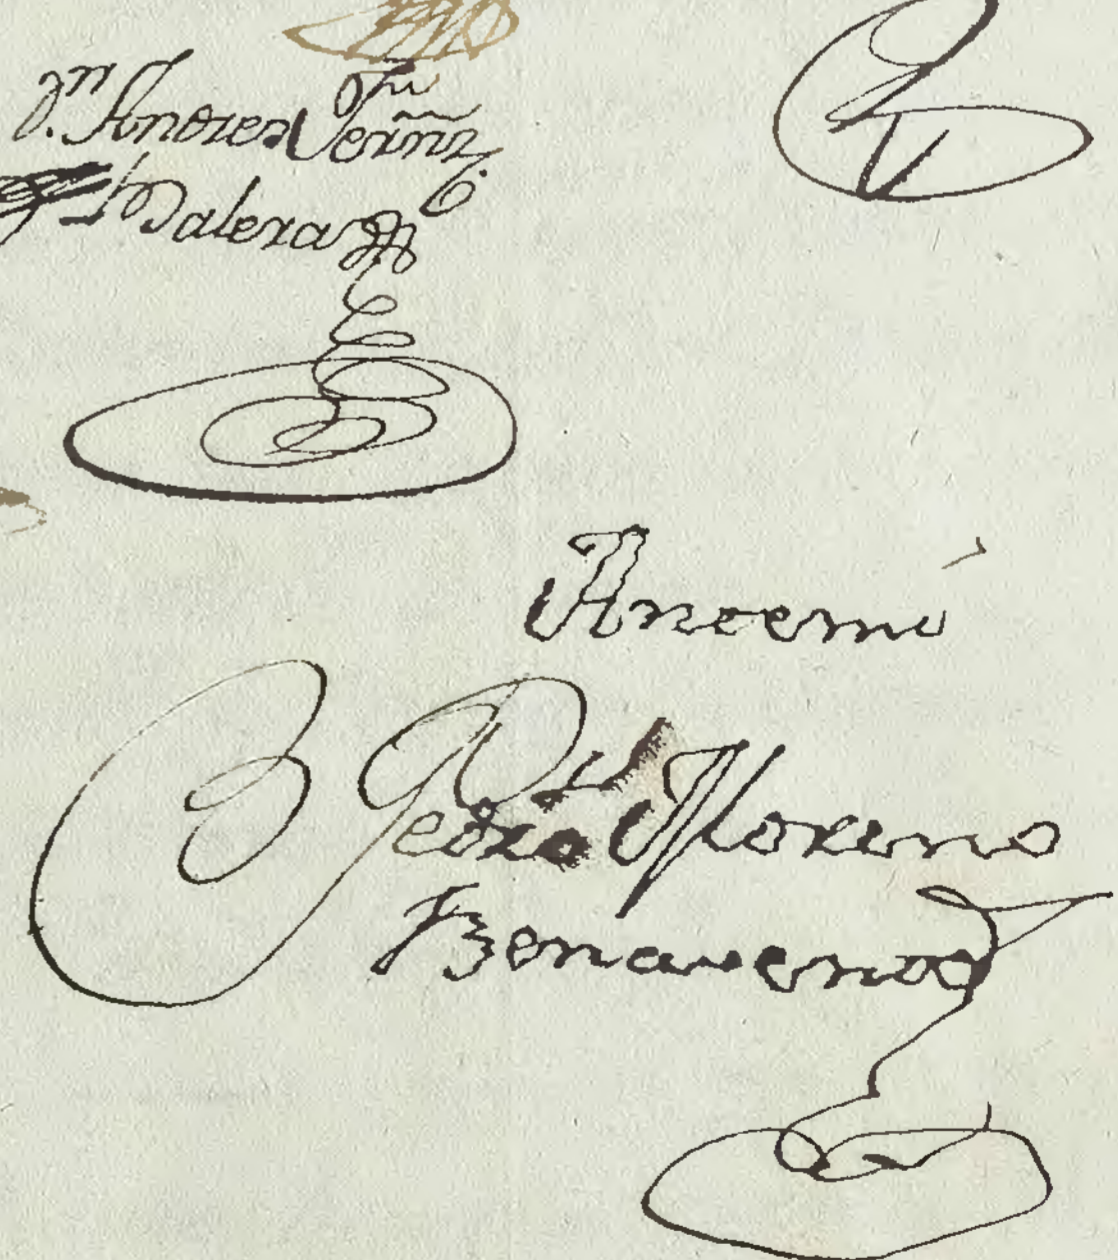 Dn Andres Ferñz
de Valera
Ante mi
Pedro Moreno
Benavente